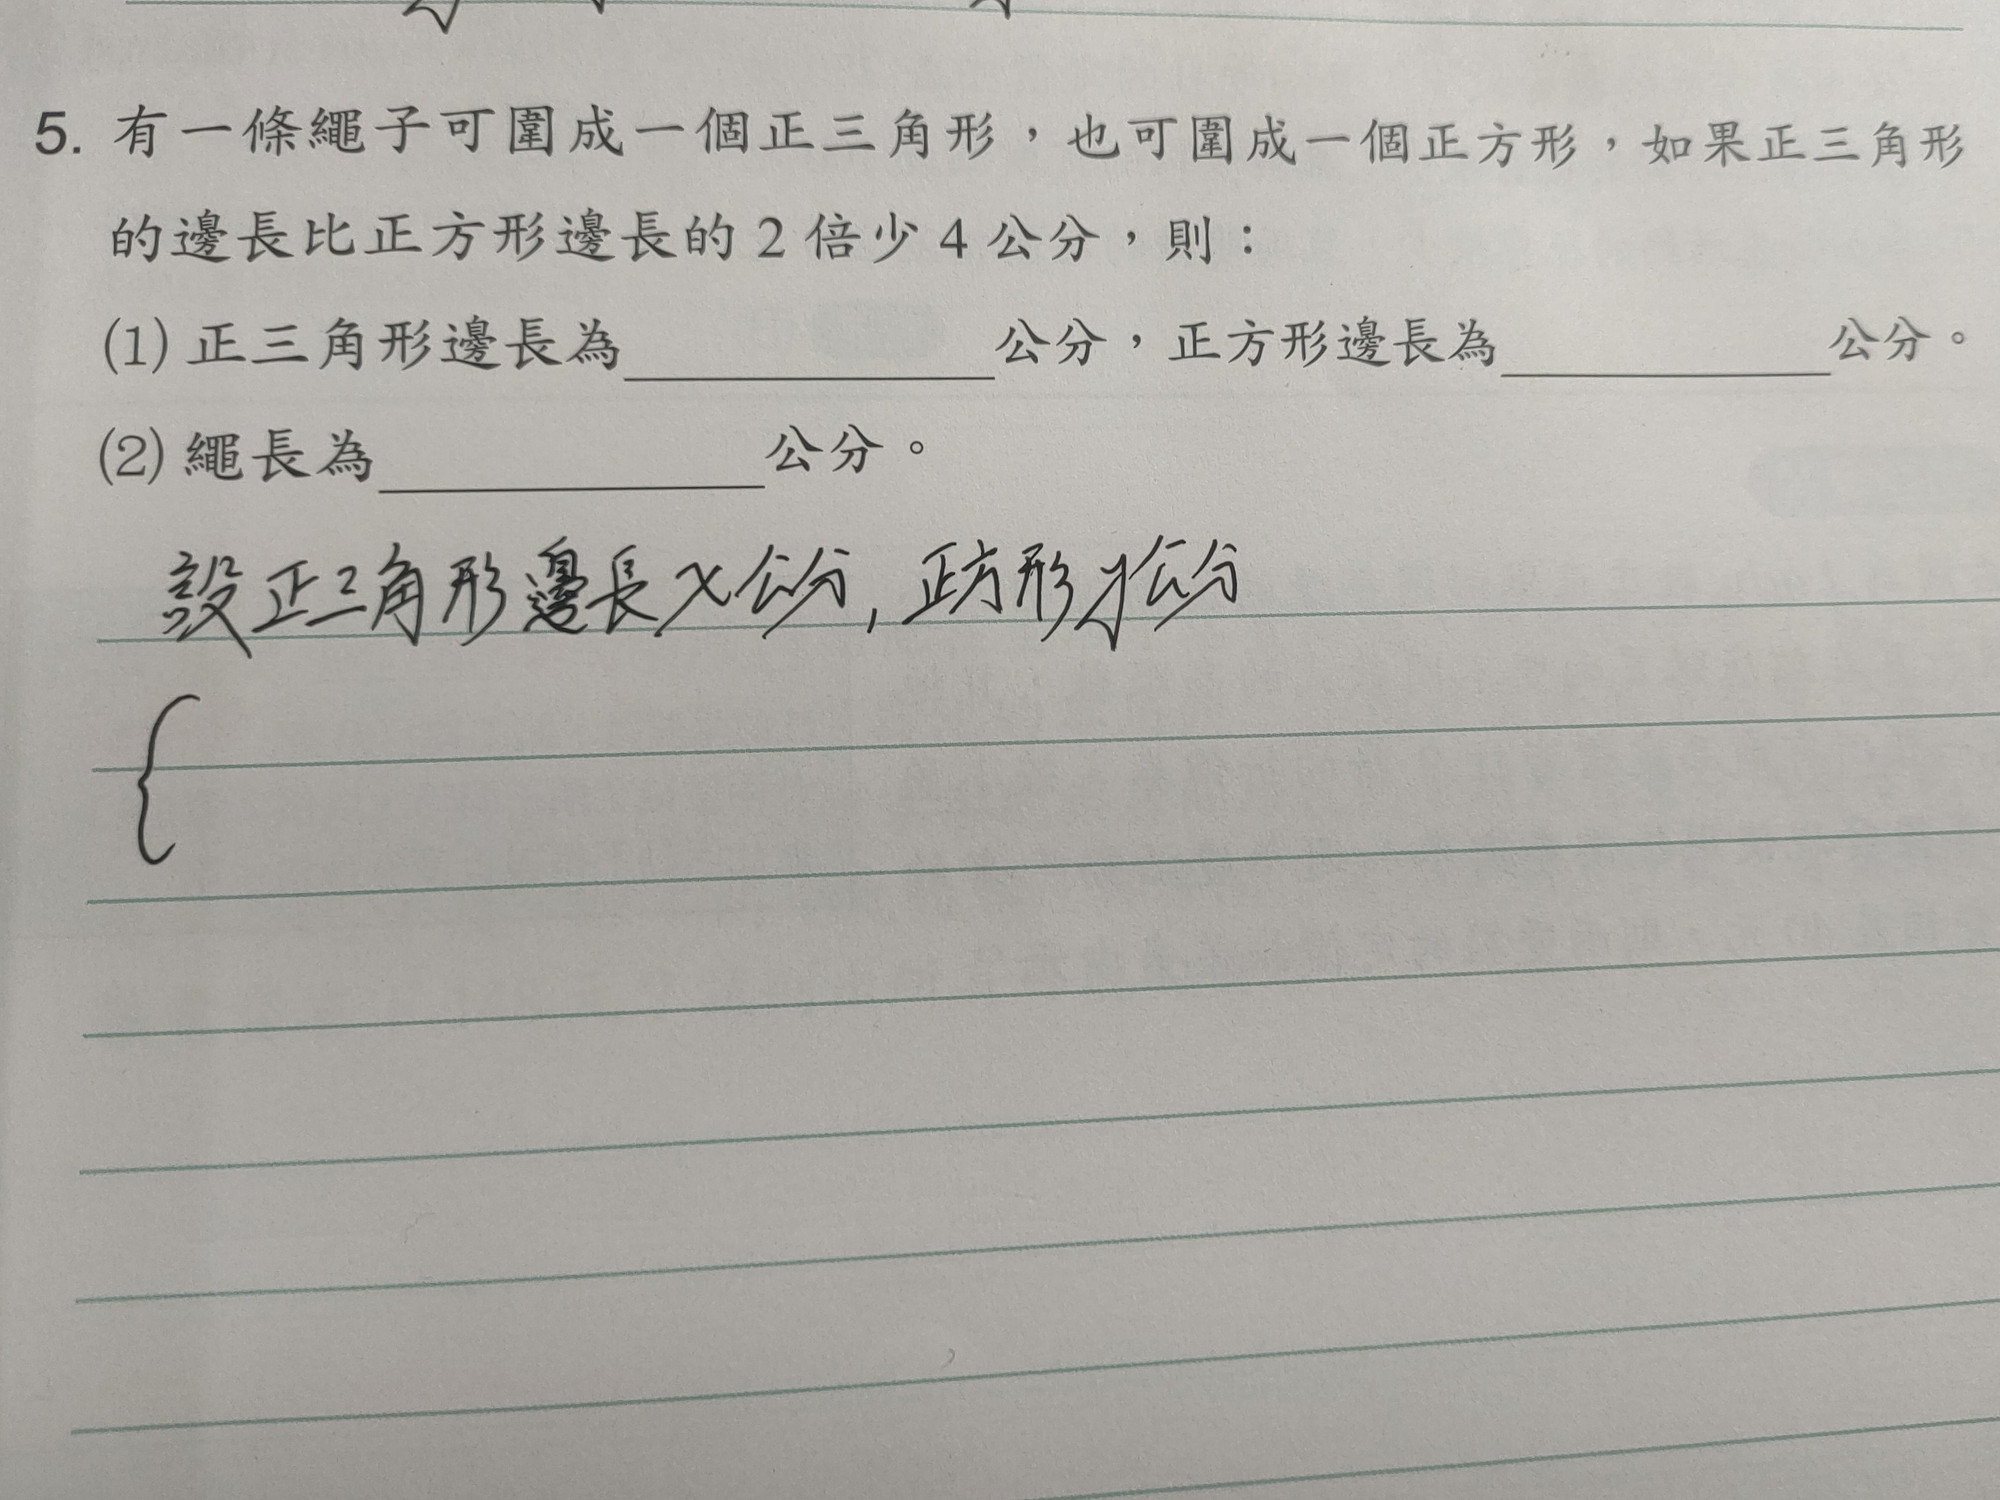 5. 有一條繩子可圍成一個正三角形，也可圍成一個正方形，如果正三角形
的邊長比正方形邊長的 2 倍少 4 公分，則：
(1) 正三角形邊長為＿＿＿＿＿＿公分，正方形邊長為＿＿＿＿＿公分。
(2) 繩長為＿＿＿＿＿＿公分。
設正三角形邊長x公分, 正方形y公分
{